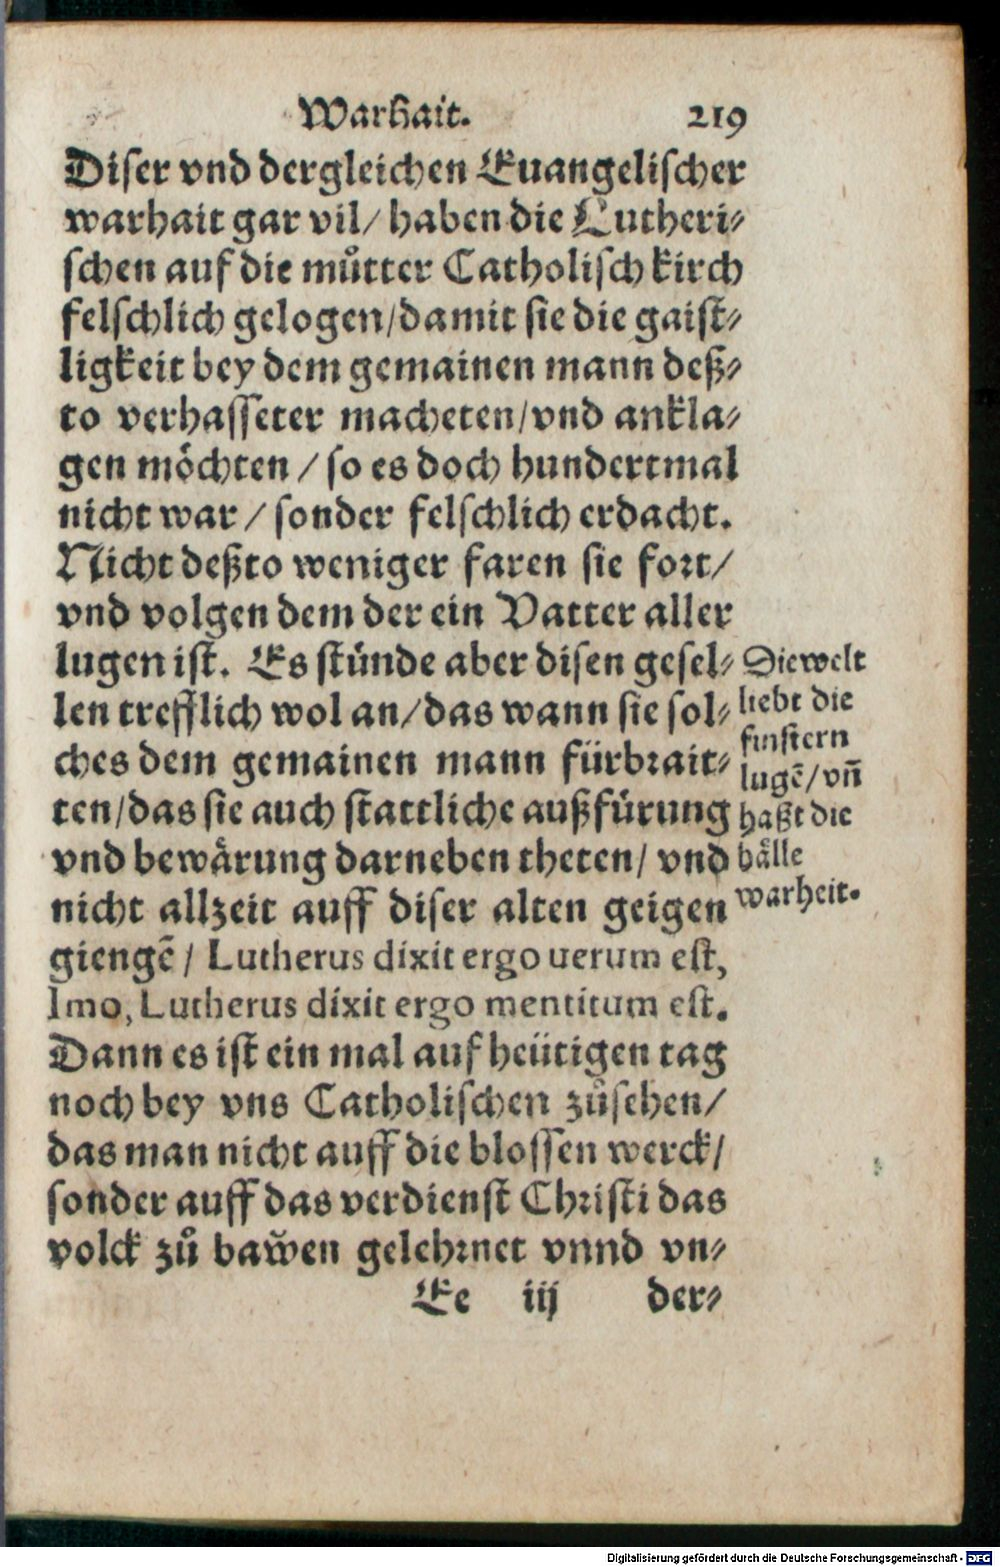 Warhait. 219
Diser vnd dergleichen Euangelischer
warhait gar vil/ haben die Lutheri⸗
schen auf die můtter Catholisch kirch
felschlich gelogen/damit sie die gaist⸗
ligkeit bey dem gemainen mann deß⸗
to verhasseter macheten/vnd ankla⸗
gen möchten / so es doch hundertmal
nicht war / sonder felschlich erdacht.
Nicht deßto weniger faren sie fort/
vnd volgen dem der ein Vatter aller
lugen ist. Es stünde aber disen gesel⸗
len trefflich wol an/das wann sie sol⸗
ches dem gemainen mann fürbrait⸗
ten/das sie auch stattliche außfürung
vnd bewärung darneben theten/ vnd
nicht allzeit auff diser alten geigen
giengẽ / Lutherus dixit ergo uerum est,
Imo, Lutherus dixit ergo mentitum est.
Dann es ist ein mal auf heütigen tag
noch bey vns Catholischen zůsehen/
das man nicht auff die blossen werck/
sonder auff das verdienst Christi das
volck zů baw̆en gelehrnet vnnd vn⸗
Ee iij der⸗
Die welt
liebt die
finstern
lugẽ/vñ
haßt die
hälle
warheit.
Digitalisierung gefördert durch die Deutsche Forschungsgemeinschaft - DFG